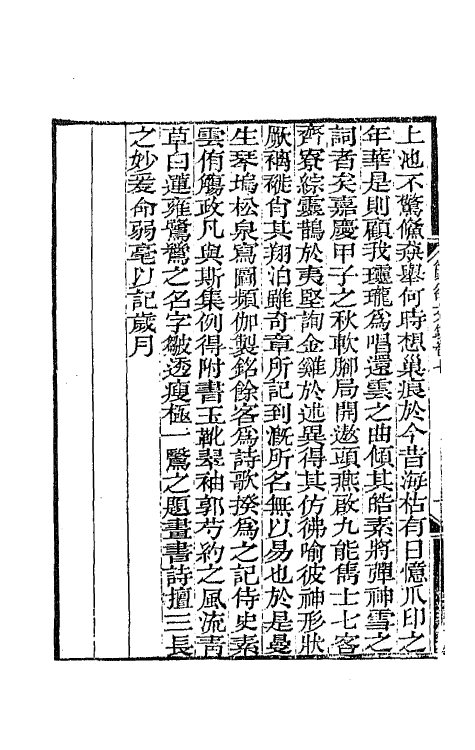 上池不驚鯈𩼣舉何時想巢痕於今昔海枯有日憶爪印之
年華是則顧我瓏瓏為唱還雲之曲傾其皓素將彈神雪之
詞者矣嘉慶甲子之秋軟腳局開遨頭燕啟九能雋士七客
齊寮綜靈鵲於夷堅詢金雞於述異得其仿彿喻彼神形狀
厥褵褷肖其翔泊雖奇章所記到溉所名無以易也於是曼
生琴塢松泉寫圖頻伽製銘餘客為詩歌揆為之記侍史素
雲侑觴政凡與斯集例得附書玉靴翠袖郭芍約之風流青
草白蓮雍鷺鷥之名字皺透瘦極一鷺之題畫書詩擅三長
之妙爰命弱毫以記歲月